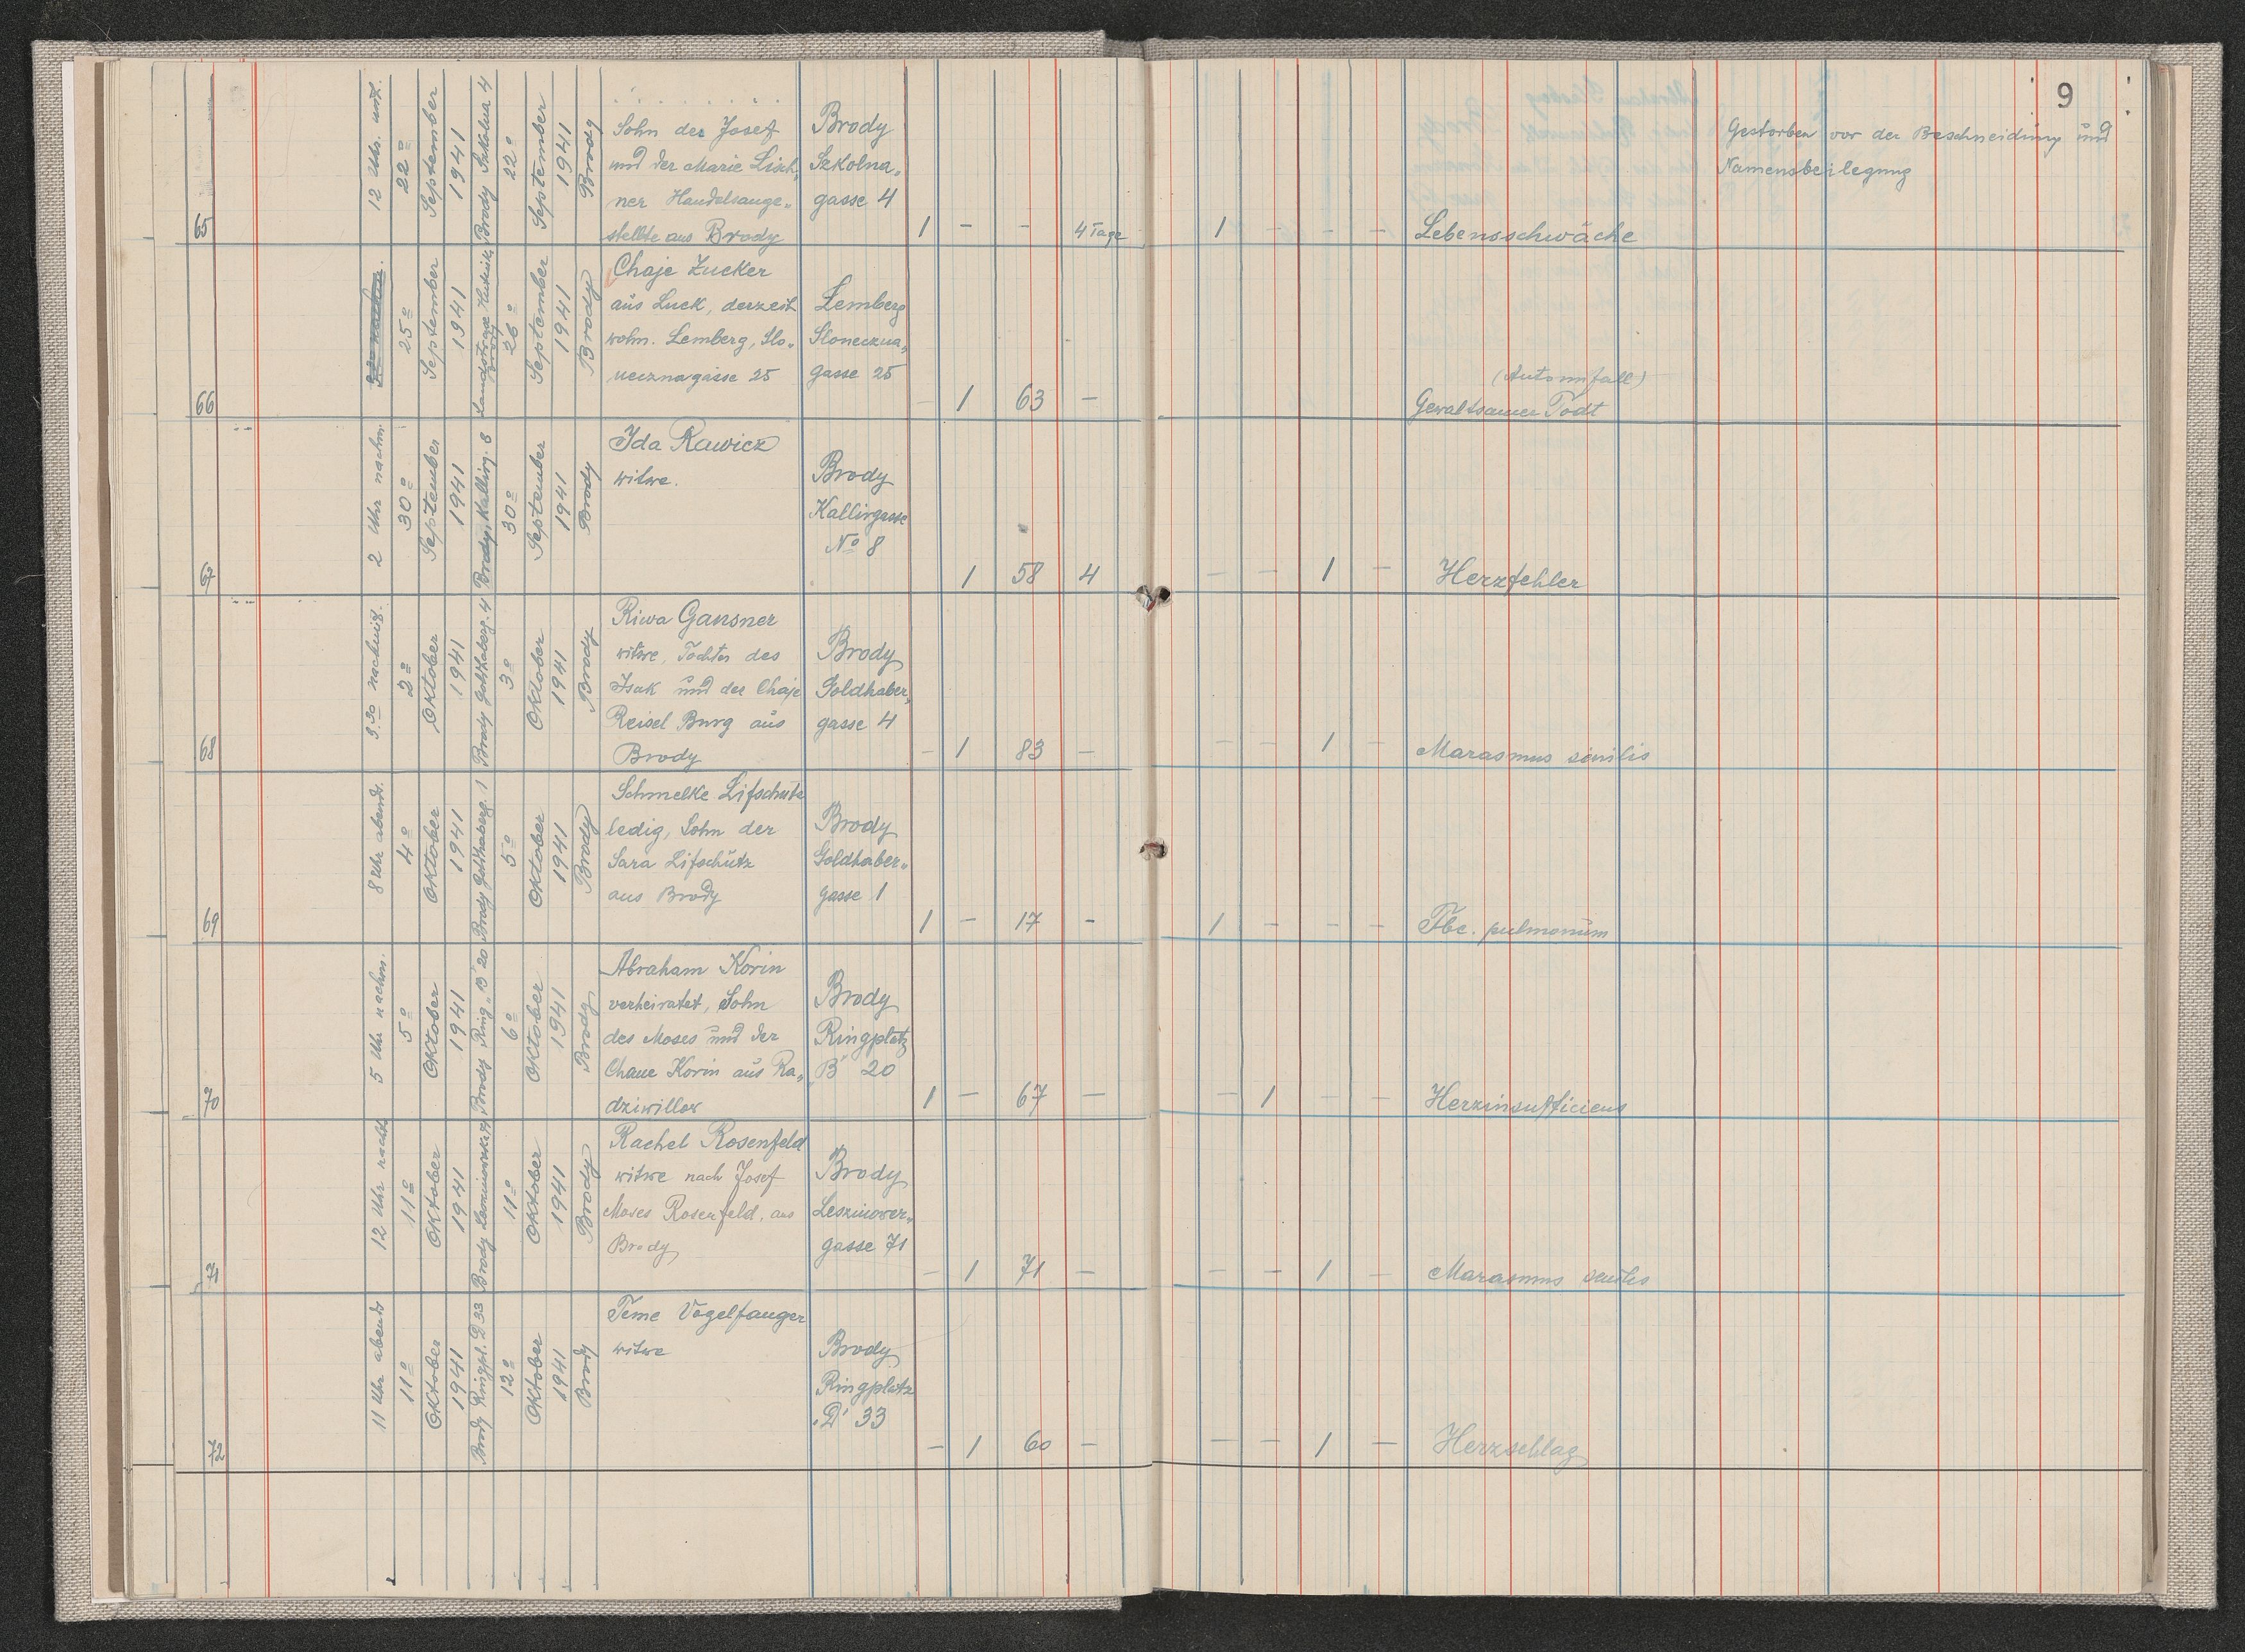 9
65
12 Uhr. mitt.
22°
September
1941
Brody Szkolna 4
22°
September
1941
Brody
. . . . . . . .
Sohn des Josef
und der Marie Lisch„
ner Handelsange„
stellte aus Brody
Brody
Szkolna„
gasse 4
1 - - 4 Tage
1 - - -
Lebensschwäche
Gestorben vor der Beschneidung und
Namensbeilegung
66
25°
September
1941
Landstrasse
Brody
26°
September
1941
Brody
Chaje Zucker
aus Luck, derzeit
wohn. Lemberg, Slo„
necznagasse 25
Lemberg
Sloneczna„
gasse 25
- 1 63 -
(Autounfall)
Gewaltsamer Todt
67
2 Uhr nachm.
30°
September
1941
Brody, Kallirg. 8
30°
September
1941
Brody
Ida Rawicz
witwe.
Brody
Kallirgasse
No 8
1 58 4
- - 1 -
Herzfehler
68
3.30 nachmitt.
2°
Oktober
1941
Brody Goldhaberg. 4
3°
Oktober
1941
Brody
Riwa Gansner
witwe, Tochter des
Isak und der Chaje
Reisel Burg aus
Brody
Brody
Goldhaber„
gasse 4
- 1 83 -
- - 1 -
Marasmus sinilis
69
8 Uhr abends.
4°
Oktober
1941
Brody Goldhaberg. 1
5°
Oktober
1941
Brody
Schmelke Lifschütz
ledig, Sohn der
Sara Lifschütz
aus Brody
Brody
Goldhaber„
gasse 1
1 - 17 -
1 - - -
Tbc. pulmonum
70
5 Uhr nachm.
5°
Oktober
1941
Brody Ring „B" 20
6°
Oktober
1941
Brody
Abraham Korin
verheiratet, Sohn
des Moses und der
Chane Korin aus Ra„
dziwillow
Brody
Ringplatz
„B" 20
1 - 67 -
- 1 - -
Herzinsufficienz
71
12 Uhr nachts
11°
Oktober
1941
Brody
11°
Oktober
1941
Brody
Rachel Rosenfeld
witwe nach Josef
Moses Rosenfeld, aus
Brody
Brody
Lesziower„
gasse 71
- 1 71 -
- - 1 -
Marasmus senilis
72
11 Uhr abends
11°
Oktober
1941
Brody Ringpl. D 33
12°
Oktober
1941
Brody
Teme Vogelfanger
witwe
Brody
Ringplatz
„D" 33
- 1 60 -
- - 1 -
Herzschlag